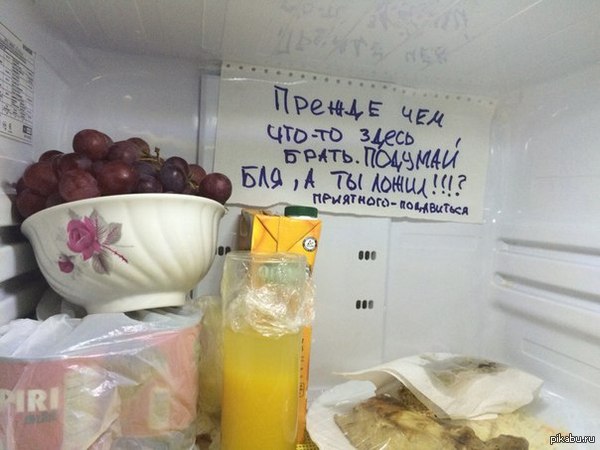 Прежде чем
что-то здесь
брать. Подумай
бля, а ты ложил!!!?
приятного-подавиться
PIRI
pikabu.ru